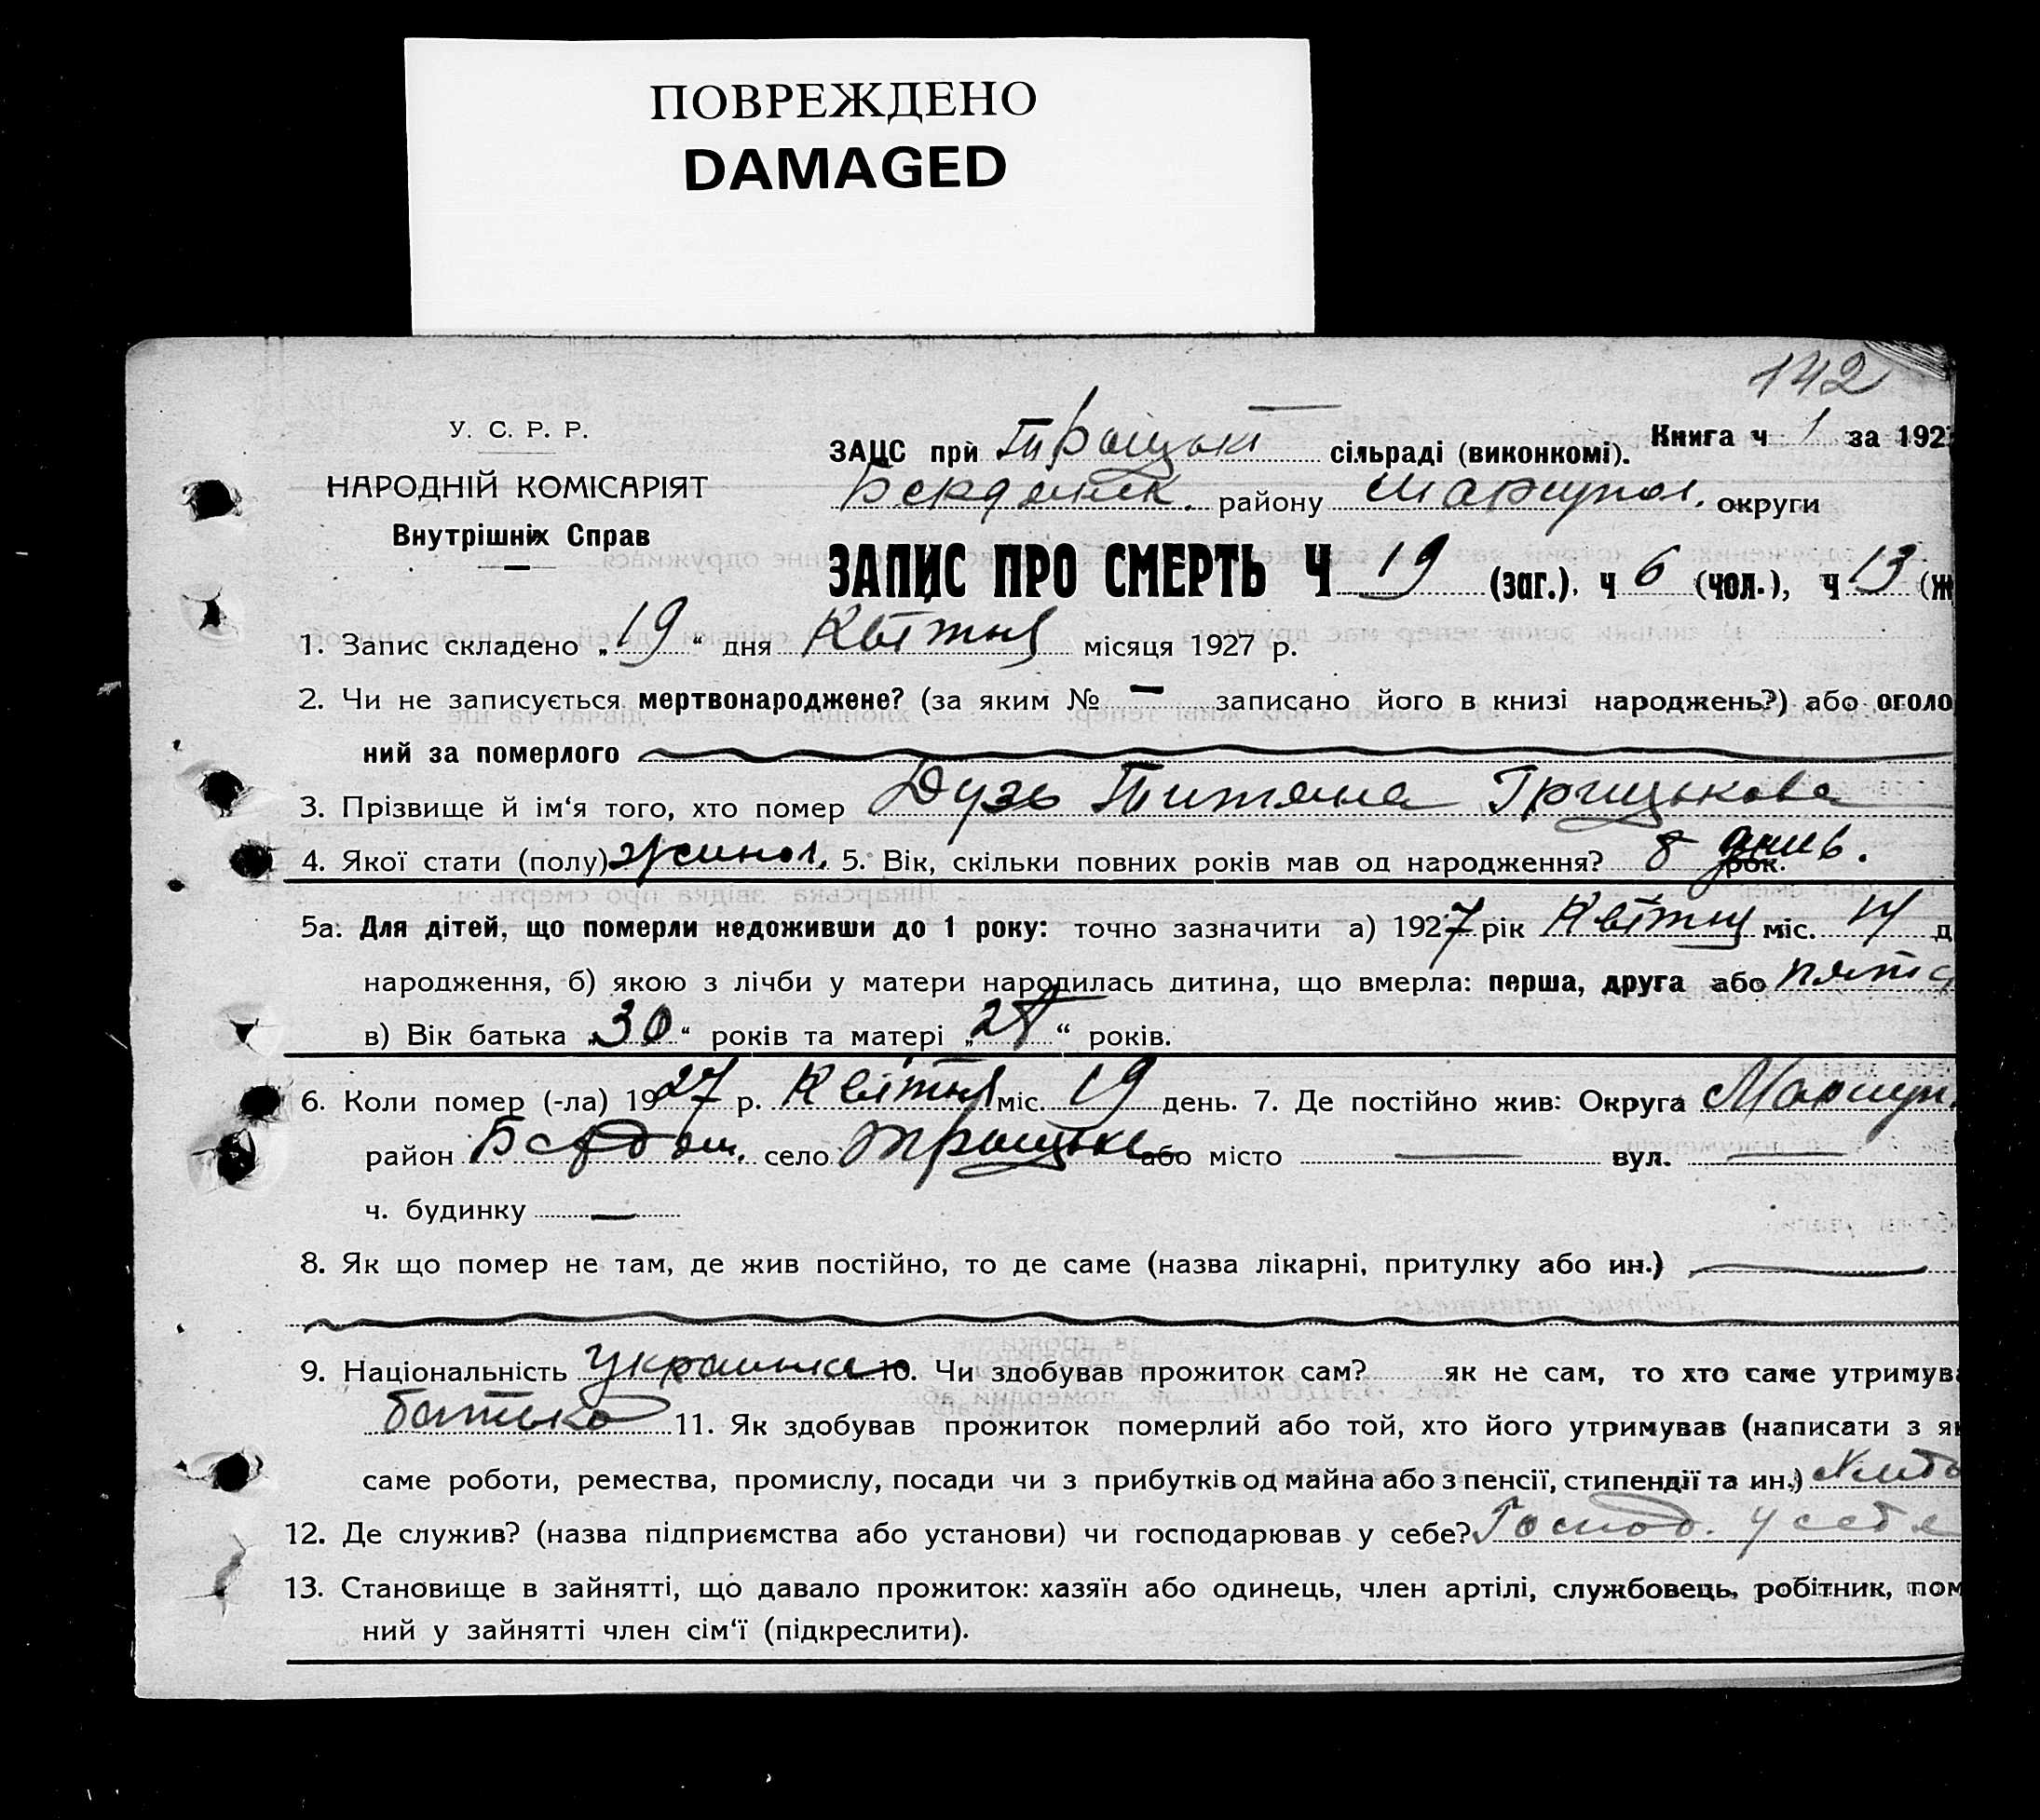 ПОВРЕЖДЕНО
DAMAGED
142
У. С. Р. Р.
НАРОДНІЙ КОМІСАРІЯТ
Внутрішніх Справ
ЗАЦС при Троцькі сільраді (виконкомі). Книга ч 1 за 192
Бердянськ. району Маріупол. округи
ЗАПИС ПРО СМЕРТЬ Ч 19 (заг.), ч 6 (чол.), ч 13 (ж
1. Запис складено „19“ дня Квітня місяця 1927 р.
2. Чи не записується мертвонароджене? (за яким № — записано його в книзі народжень?) або оголо
ний за померлого
3. Прізвище й ім‘я того, хто помер Дузь Титяна Грицькова
4. Якої стати (полу) жиноч. 5. Вік, скільки повних років мав од народження? 8 днив. рок.
5а. Для дітей, що померли недоживши до 1 року: точно зазначити а) 1927 рік Квітня міс. д
народження, б) якою з лічби у матери народилась дитина, що вмерла: перша, друга або пята
в) Вік батька „30“ років та матері „28“ років.
6. Коли помер (-ла) 1927 р. Квітня міс. 19 день. 7. Де постійно жив: Округа Мариуп.
район Бердян. село Троцьке або місто — вул. —
ч. будинку —
8. Як що помер не там, де жив постійно, то де саме (назва лікарні, притулку або ин.) —
9. Національність украинка 10. Чи здобував прожиток сам? як не сам, то хто саме утримува
батько 11. Як здобував прожиток померлий або той, хто його утримував (написати з як
саме роботи, ремества, промислу, посади чи з прибутків од майна або з пенсії, стипендії та ин.) Хлибо
12. Де служив? (назва підприємства або установи) чи господарював у себе? Господ. у себе
13. Становище в зайнятті, що давало прожиток: хазяїн або одинець, член артілі, службовець, робітник, пом
ний у зайнятті член сім‘ї (підкреслити).